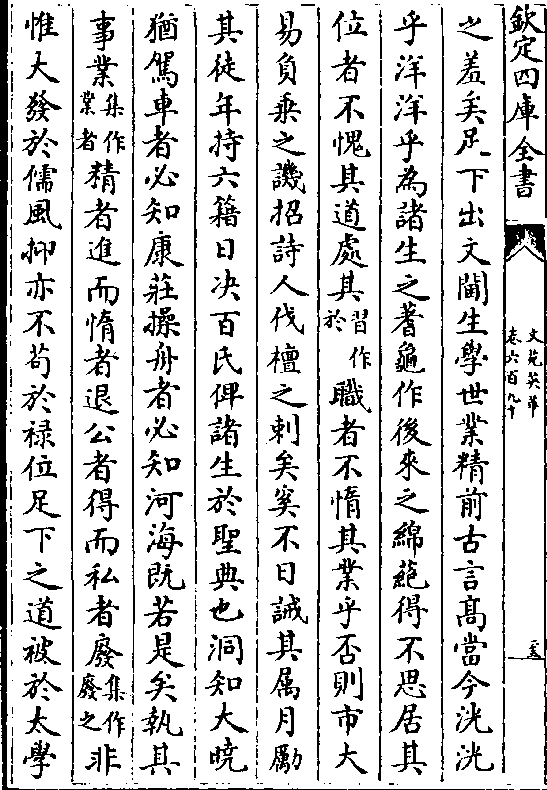 欽定四庫全書
文苑英華
卷六百九十
之羞矣足下出文閫生學世業精前古言髙當今洸洸
乎洋洋乎為諸生之蓍龜作後來之綿蕝得不思居其
位者不愧其道處其習作於職者不惰其業乎否則市大
易負乗之譏招詩人伐檀之刺矣奚不日誡其属月勵
其徒年持六籍日决百氏俾諸生於聖典也洞知大暁
猶駕車者必知康莊操舟者必知河海既若是矣執其
事業集作業者精者進而惰者退公者得而私者廢集作廢之非
惟大發於儒風抑亦不苟於禄位足下之道被於太學